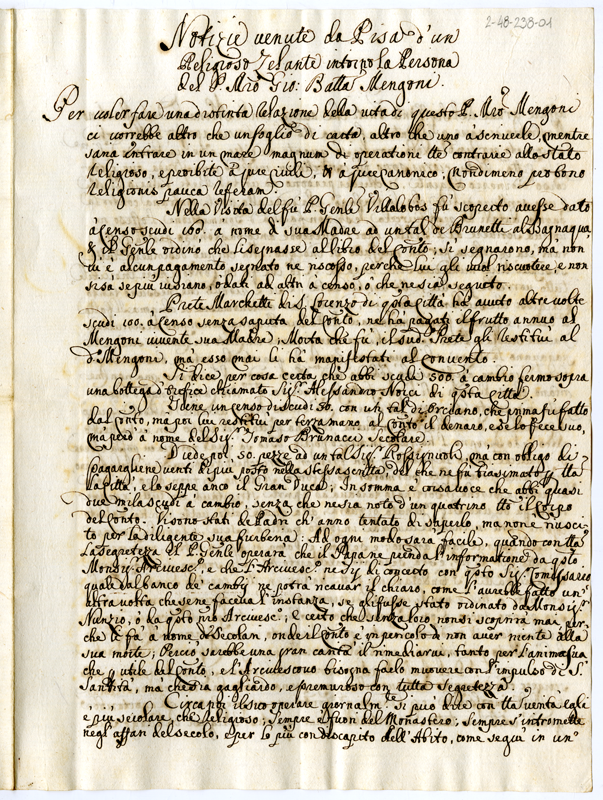 2-48-238-01
Notizie venute da Pisa d'un
Religioso Zelante intorno la Persona
del P. Mro Gio: Batta Mengoni.
Per voler fare una distinta relazione della vita di questo P. Mro Mengoni
ci vorrebbe altro che un foglio di carta, altro che uno à scriverle, mentre
saria intrare in un mare magnum di operationi tte contrarie allo stato
Religioso, e proibite à jure civili, à jure canonico; Nondimeno pro bono
Religionis pauca referam.
Nella Visita del fù P. Genle Villalobos fù scoperto avesse dato
à censo scudi 100. à nome di sua Madre ad un tal de Brunetti al
il P. Genle ordinò che li segnasse al libro del Conto, si segnarono, mà non
vi è alcun pagamento segnato ne riscosso, perche lui gli vuol riscuotere, e non
si sà se più vi siano, ò dati ad altri à censo, ò che ne sia seguito.
Prete Marchetti di S. Lorenzo di qsta Città hà avuto altre volte
scudi 100. à Censo senza saputa del Conto, ne hà pagati il frutto annuo al
Mengoni vivente sua Madre; Morta che fù, il sud. Prete gli restituì al
d. Mengoni, mà esso mai li hà manifestati al Convento.
Si dice per cosa certa che abbi scudi 500. à cambio fermo sopra
una bottega d'orefice chiamato Sigr Alessandro Norci di qsta Città.
Tiene un censo di scudi 50. con un tal di Orciano, che prima fù fatto
dal Conto, mà poi lui restituì per terza mano al Conto il denaro, e se lo fece suo,
mà però à nome del Sigr Tomaso Brunacci Secolare.
Diede poi 50. pezze ad un tal Sigr Rossignuoli, mà con obligo di
pagargliene venti di più posto nella stessa scritta, del che ne fù biasimato p tta
la Città, e lo seppe anco il Gran Duca; In somma è cosa voce che abbi quasi
due mila scudi à cambio, senza che ne sia noto d'un quatrino tto il Corpo
del Conto. Vi sono stati de Padri ch'anno tentato di saperlo, ma non è riusci-
to per la diligente sua furberia: Ad ogni modo sarà facile, quando con tta
la segretezza il P. Genle operarà che il Papa ne prenda l'informatione da qsto
Monsigr Arcivesc.o e che l'Arcivesc.o ne sij di concerto con qsto Sigr Comissario
quale dal banco de cambij ne potrà ricavar il chiaro, come l'aurebbe fatto un'
altra volta che se ne faceva l'instanza, se gli fusse stato ordinato da Monsigr
Nunzio, ò da qsto nro Arcivesc.o; è certo che senza loro non si scoprirà mai per-
che li fà à nome de Secolari, onde il Conto è in pericolo di non aver niente alla
sua morte; Perciò sarebbe una gran carità il rimediarvi, tanto per l'anima sua
che p utile del Conto, e l'Arcivescovo bisogna farlo muovere con l'impulso di S.
Santità, ma che sia gagliardo, e premuroso con tutta segretezza.
Circa poi il suo operare giornalm.e si può dire con tta verità egli
è più secolare, che Religioso, sempre è fuori del Monastero; sempre s'intromette
negl'affari del secolo, e per lo più con discapito dell'Abito, come seguì in un'